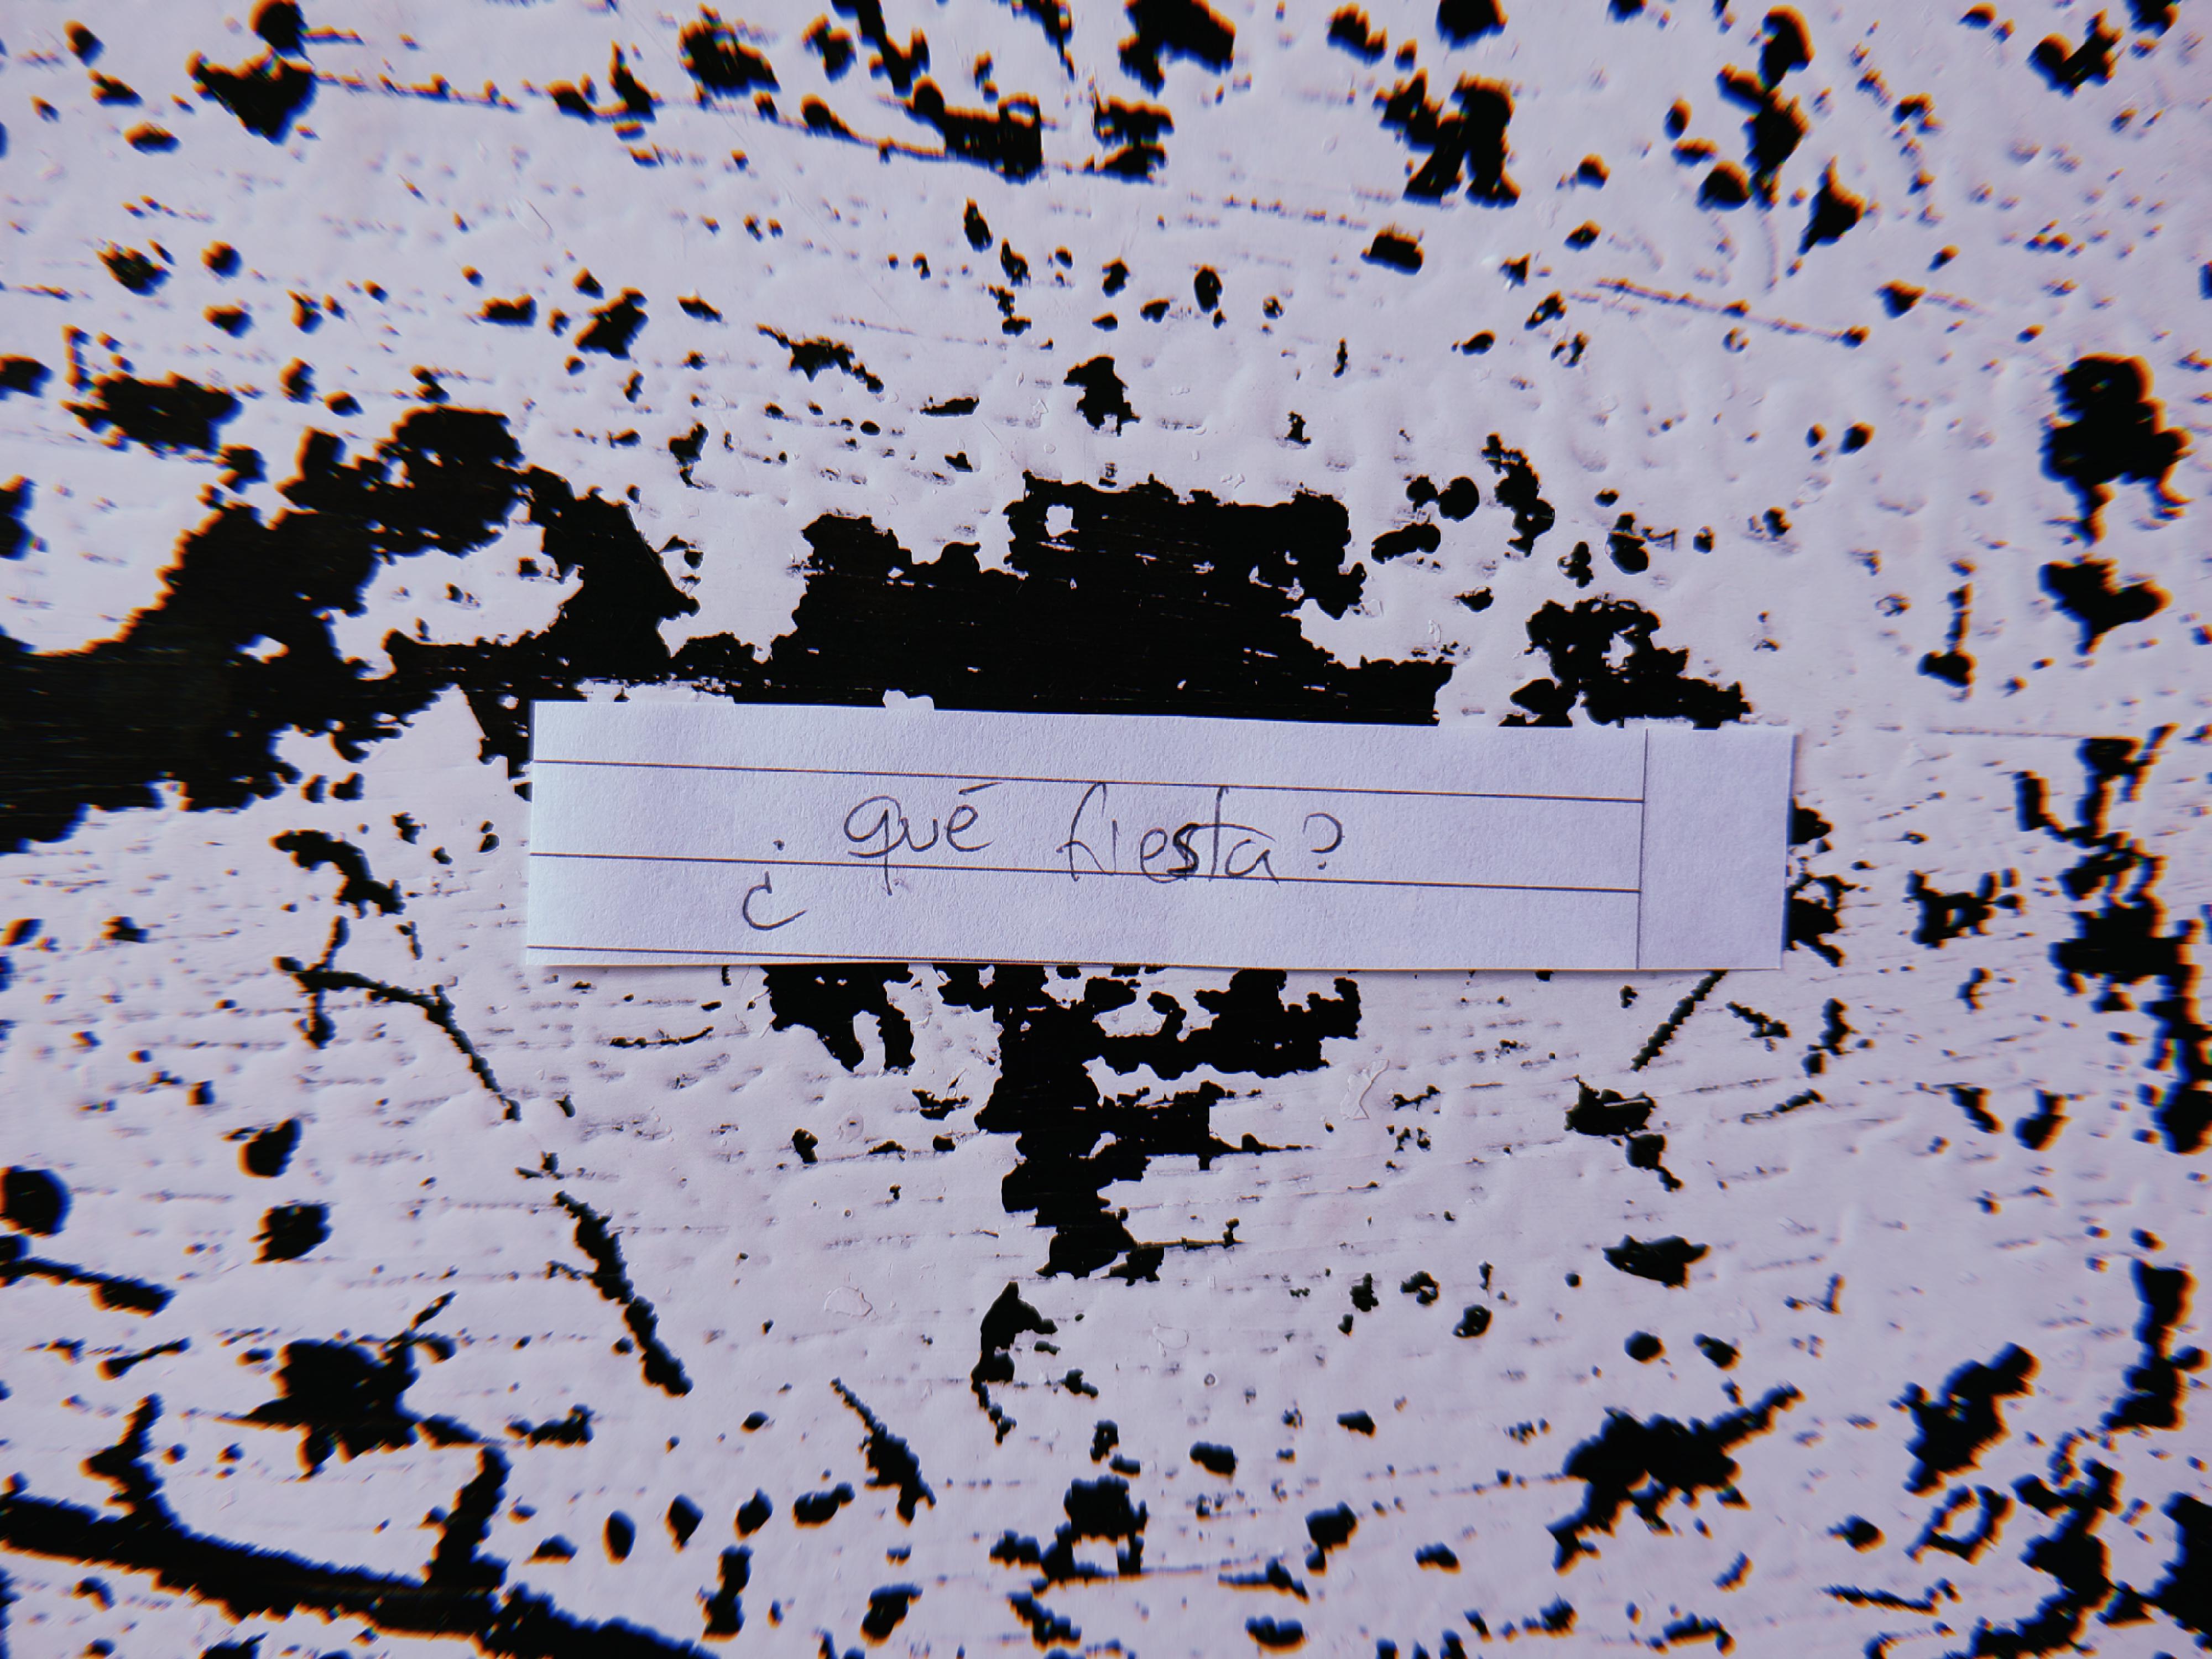 ¿qué fiesta?